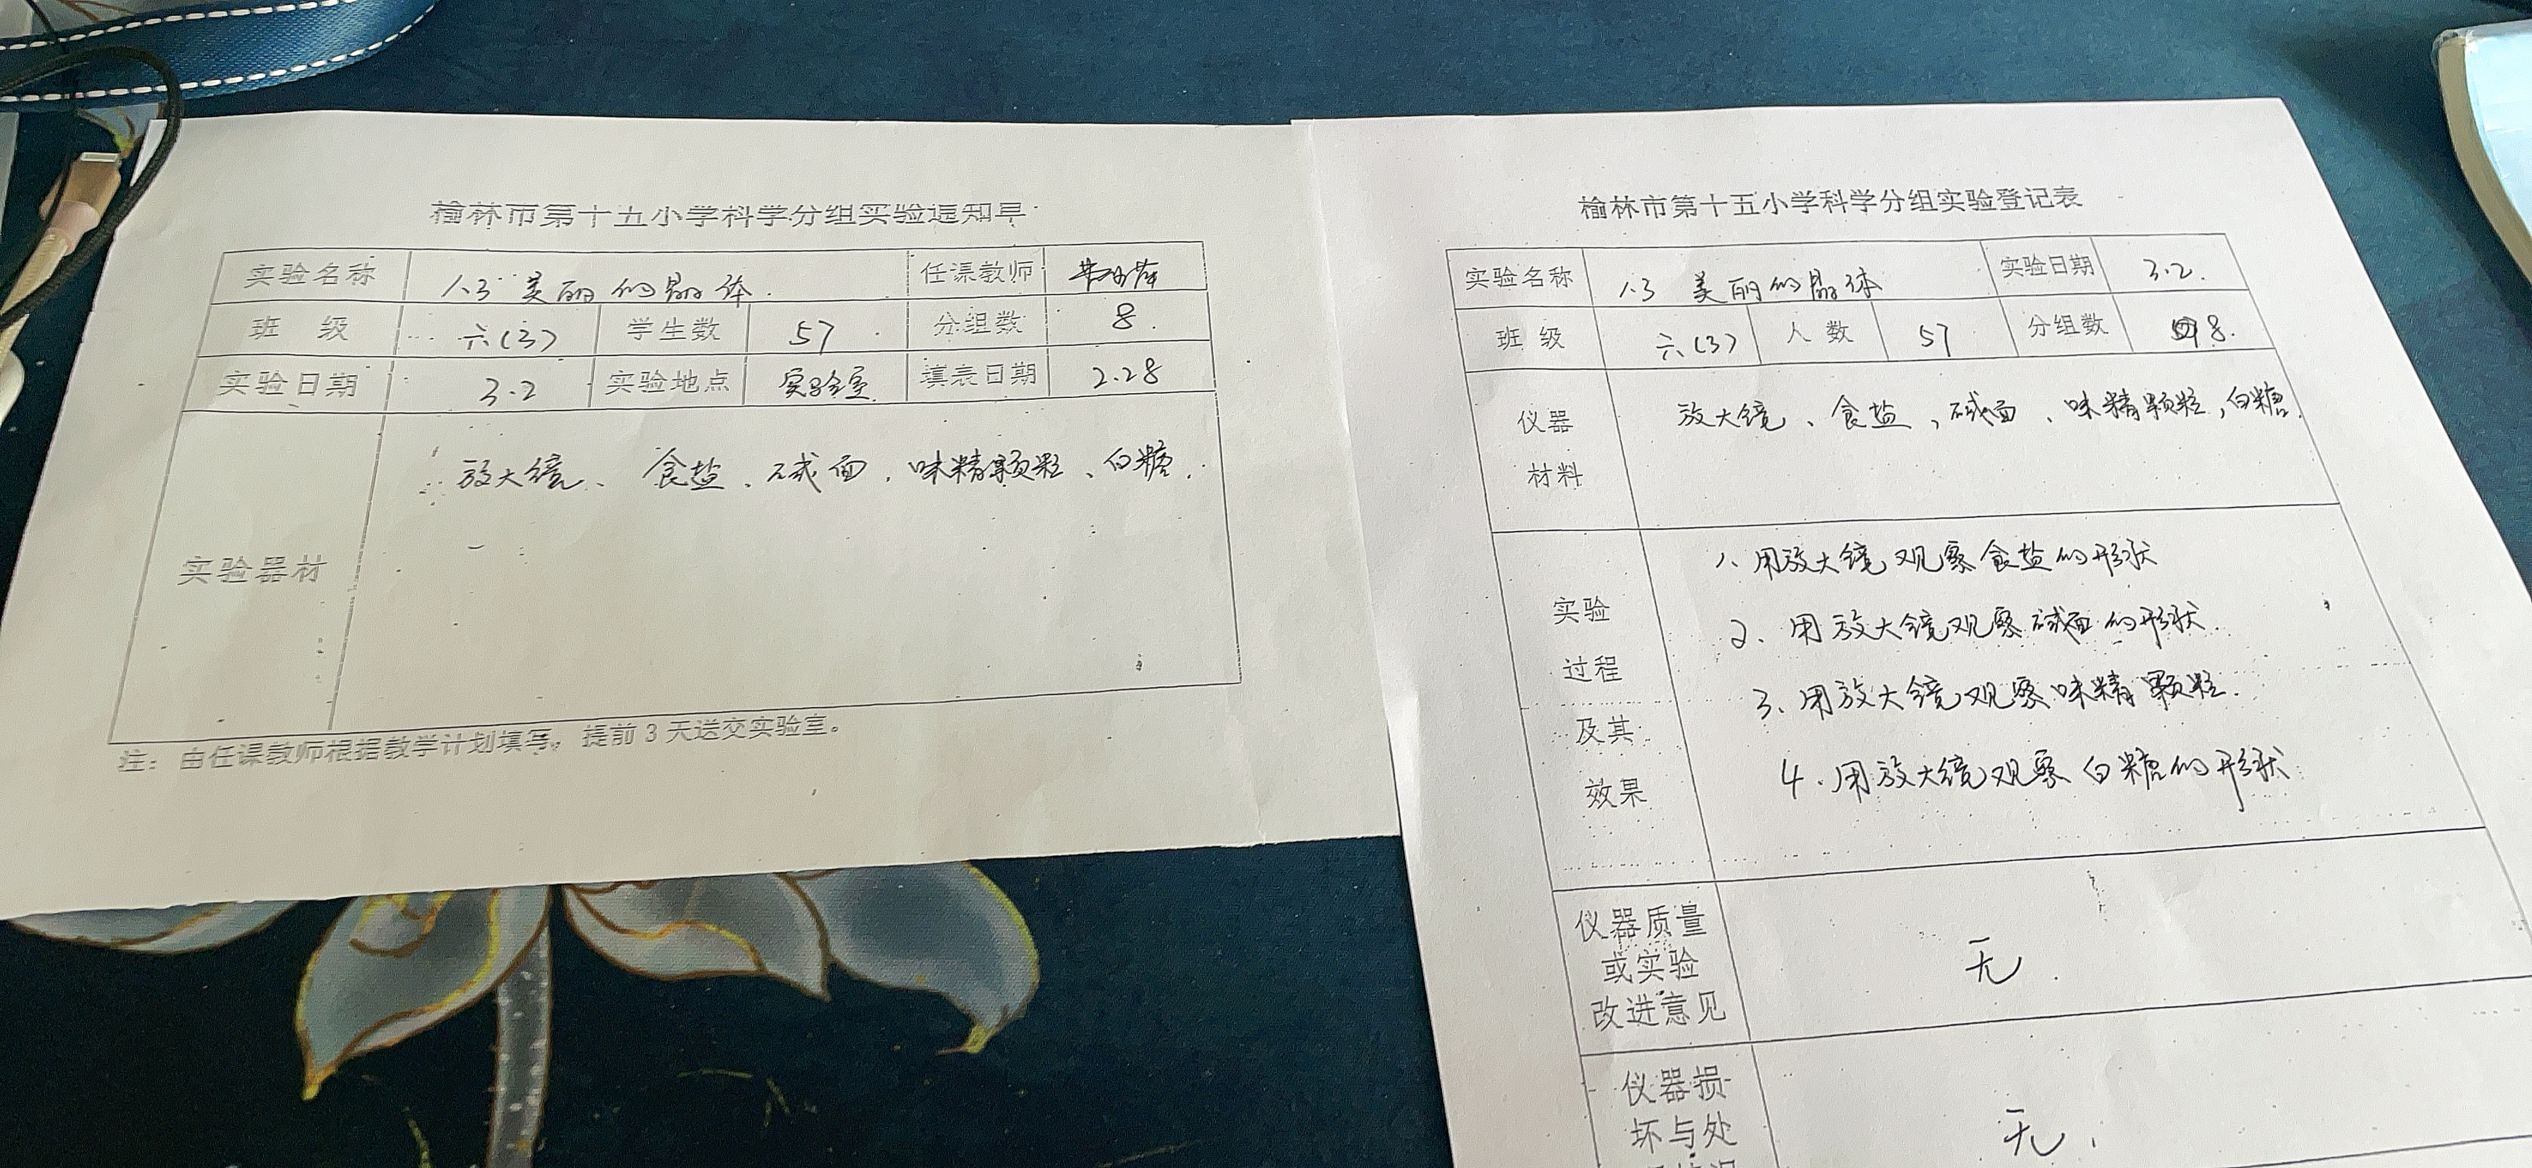 榆林市第十五小学科学分组实验通知单
实验名称 1.3 美丽的晶体. 任课教师
班 级 六(3) 学生数 57 分组数 8.
实验日期 3.2 实验地点 实验室 填表日期 2.28
放大镜、食盐、碱面、味精颗粒、白糖.
实验器材
注：由任课教师根据教学计划填写，提前 3 天送交实验室。
榆林市第十五小学科学分组实验登记表
实验名称 1.3 美丽的晶体 实验日期 3.2.
班 级 六(3) 人 数 57 分组数 8.
仪器
材料
放大镜、食盐，碱面、味精颗粒，白糖.
实验
过程
及其
效果
1、用放大镜观察食盐的形状
2、用放大镜观察碱面的形状.
3、用放大镜观察味精颗粒.
4.用放大镜观察白糖的形状
仪器质量
或实验
改进意见
无.
仪器损
坏与处
无.